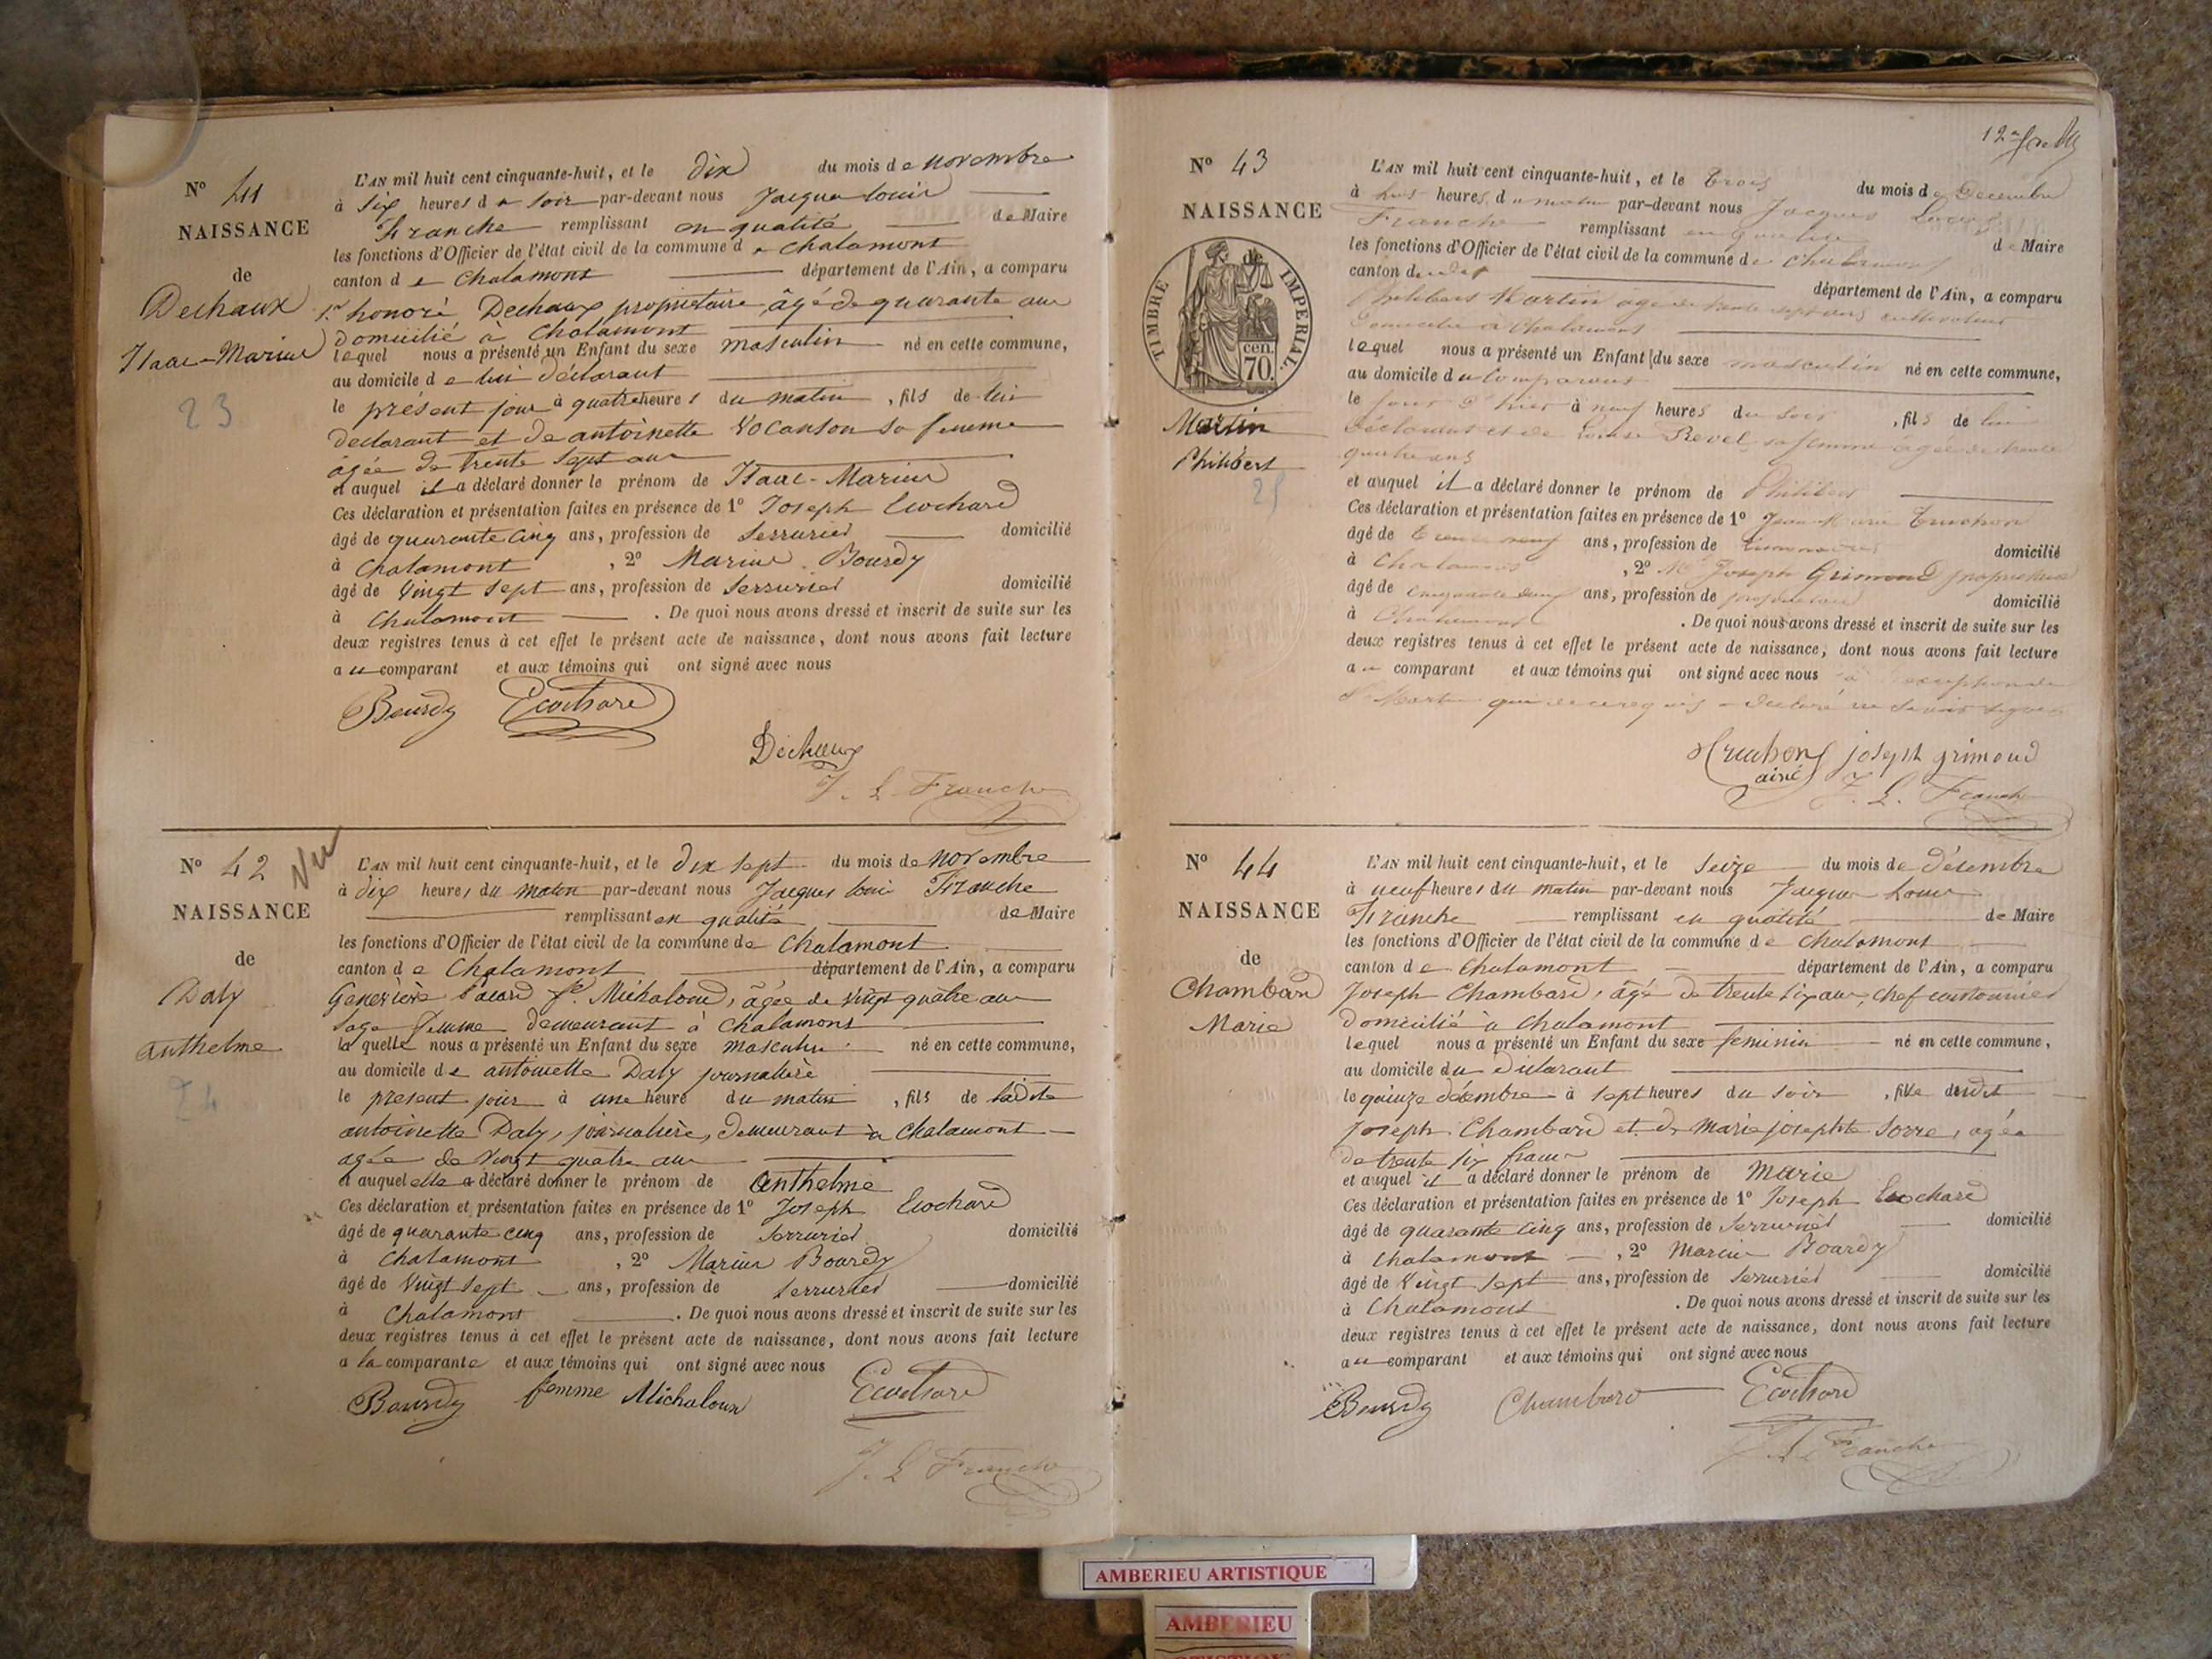 N° 41
NAISSANCE
de
Dechaux
Isaac-Marius
23
L'AN mil huit cent cinquante-huit, et le dix du mois de novembre
à six heures du soir par-devant nous Jacques Louis
Franche remplissant en qualité de Maire
les fonctions d'Officier de l'état civil de la commune de Chalamont
canton de Chalamont département de l'Ain, a comparu
Sr honoré Dechaux propriétaire, âgé de quarante ans
domicilié à Chalamont
lequel nous a présenté un Enfant du sexe masculin né en cette commune,
au domicile de lui déclarant
le présent jour à quatre heures du matin, fils de lui
declarant et de antoinette Vocanson sa femme
âgée de trente sept ans
et auquel il a déclaré donner le prénom de Isaac-Marius
Ces déclaration et présentation faites en présence de 1° Joseph Ecochard
âgé de quarante cinq ans, profession de Serrurier domicilié
à Chalamont, 2° Marius Bourdy
âgé de vingt sept ans, profession de Serrurier domicilié
à Chalamont. De quoi nous avons dressé et inscrit de suite sur les
deux registres tenus à cet effet le présent acte de naissance, dont nous avons fait lecture
au comparant et aux témoins qui ont signé avec nous
Bourdy Ecochard
Dechaux
J. L. Franche
N° 42
Vu
NAISSANCE
de
Daly
anthelme
24
L'AN mil huit cent cinquante-huit, et le dix sept du mois de novembre
à dix heures du matin par-devant nous Jacques Louis Franche
remplissant en qualité de Maire
les fonctions d'Officier de l'état civil de la commune de Chalamont
canton de Chalamont département de l'Ain, a comparu
Geneviève fe Michaloud, âgée de vingt quatre ans
Sage femme demeurant à Chalamont
laquelle nous a présenté un Enfant du sexe masculin né en cette commune,
au domicile de antoinette Daly journalière
le present jour à une heure du matin, fils de ladite
antoinette Daly, journalière, demeurant à Chalamont
agée de vingt quatre ans
et auquel elle a déclaré donner le prénom de anthelme
Ces déclaration et présentation faites en présence de 1° Joseph Ecochard
âgé de quarante cinq ans, profession de serrurier domicilié
à Chalamont, 2° Marius Bourdy
âgé de vingt sept ans, profession de serrurier domicilié
à Chalamont. De quoi nous avons dressé et inscrit de suite sur les
deux registres tenus à cet effet le présent acte de naissance, dont nous avons fait lecture
a la comparante et aux témoins qui ont signé avec nous
Bourdy femme Michaloux Ecochard
J. L Franche
N° 43
NAISSANCE
de
TIMBRE IMPERIAL.
cen.
70.
Martin
Philibert
25
L'AN mil huit cent cinquante-huit, et le trois du mois de Decembre
à huit heures du matin par-devant nous Jacques Louis
Franche remplissant en qualité de Maire
les fonctions d'Officier de l'état civil de la commune de Chalamont
canton dudit département de l'Ain, a comparu
Philibert Martin âgé de trente sept ans cultivateur
Domicilié à Chalamont
lequel nous a présenté un Enfant du sexe masculin né en cette commune,
au domicile du Comparant
le jour d'hier à neuf heures du soir, fils de lui
déclarant et de Louise Revel sa femme âgée de trente
quatre ans
et auquel il a déclaré donner le prénom de Philibert
Ces déclaration et présentation faites en présence de 1° Jean Marie Truchon
âgé de trente neuf ans, profession de domicilié
à Chalamont, 2° Joseph Grimond propriétaire
âgé de cinquante ans, profession de propriétaire domicilié
à Chalamont. De quoi nous avons dressé et inscrit de suite sur les
deux registres tenus à cet effet le présent acte de naissance, dont nous avons fait lecture
au comparant et aux témoins qui ont signé avec nous à exception de
Martin qui de ce requis a declaré ne savoir signer
Truchon joseph grimond
ainé
J. L. Franche
N° 44
NAISSANCE
de
Chambard
Marie
L'AN mil huit cent cinquante-huit, et le seize du mois de décembre
à neuf heures du matin par-devant nous Jacques Louis
Franche remplissant en qualité de Maire
les fonctions d'Officier de l'état civil de la commune de Chalamont
canton de Chalamont département de l'Ain, a comparu
Joseph Chambard, âgé de trente six ans, chef cantonnier
domicilié à Chalamont
lequel nous a présenté un Enfant du sexe feminin né en cette commune,
au domicile du Déclarant
le quinze décembre à sept heures du soir, fille dudit
Joseph Chambard et de Marie josephte Sorre, agée
de trente six ans
et auquel il a déclaré donner le prénom de Marie
Ces déclaration et présentation faites en présence de 1° Joseph Ecochard
âgé de quarante cinq ans, profession de Serrurier domicilié
à Chalamont, 2° Marius Bourdy
âgé de vingt sept ans, profession de Serrurier domicilié
à Chalamont. De quoi nous avons dressé et inscrit de suite sur les
deux registres tenus à cet effet le présent acte de naissance, dont nous avons fait lecture
au comparant et aux témoins qui ont signé avec nous
Bourdy Chambard Ecochard
J. L. Franche
AMBERIEU ARTISTIQUE
AMBERIEU
ARTISTIQUE